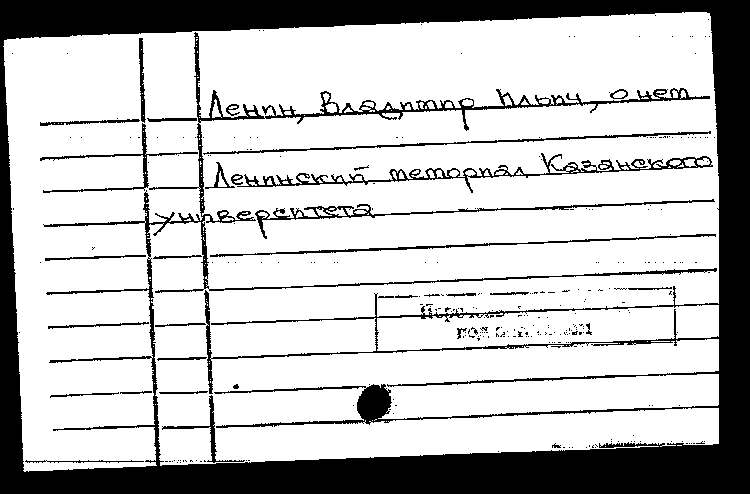 Ленин, Владимир Ильич, о нем
Ленинский мемориал Казанского
университета
под